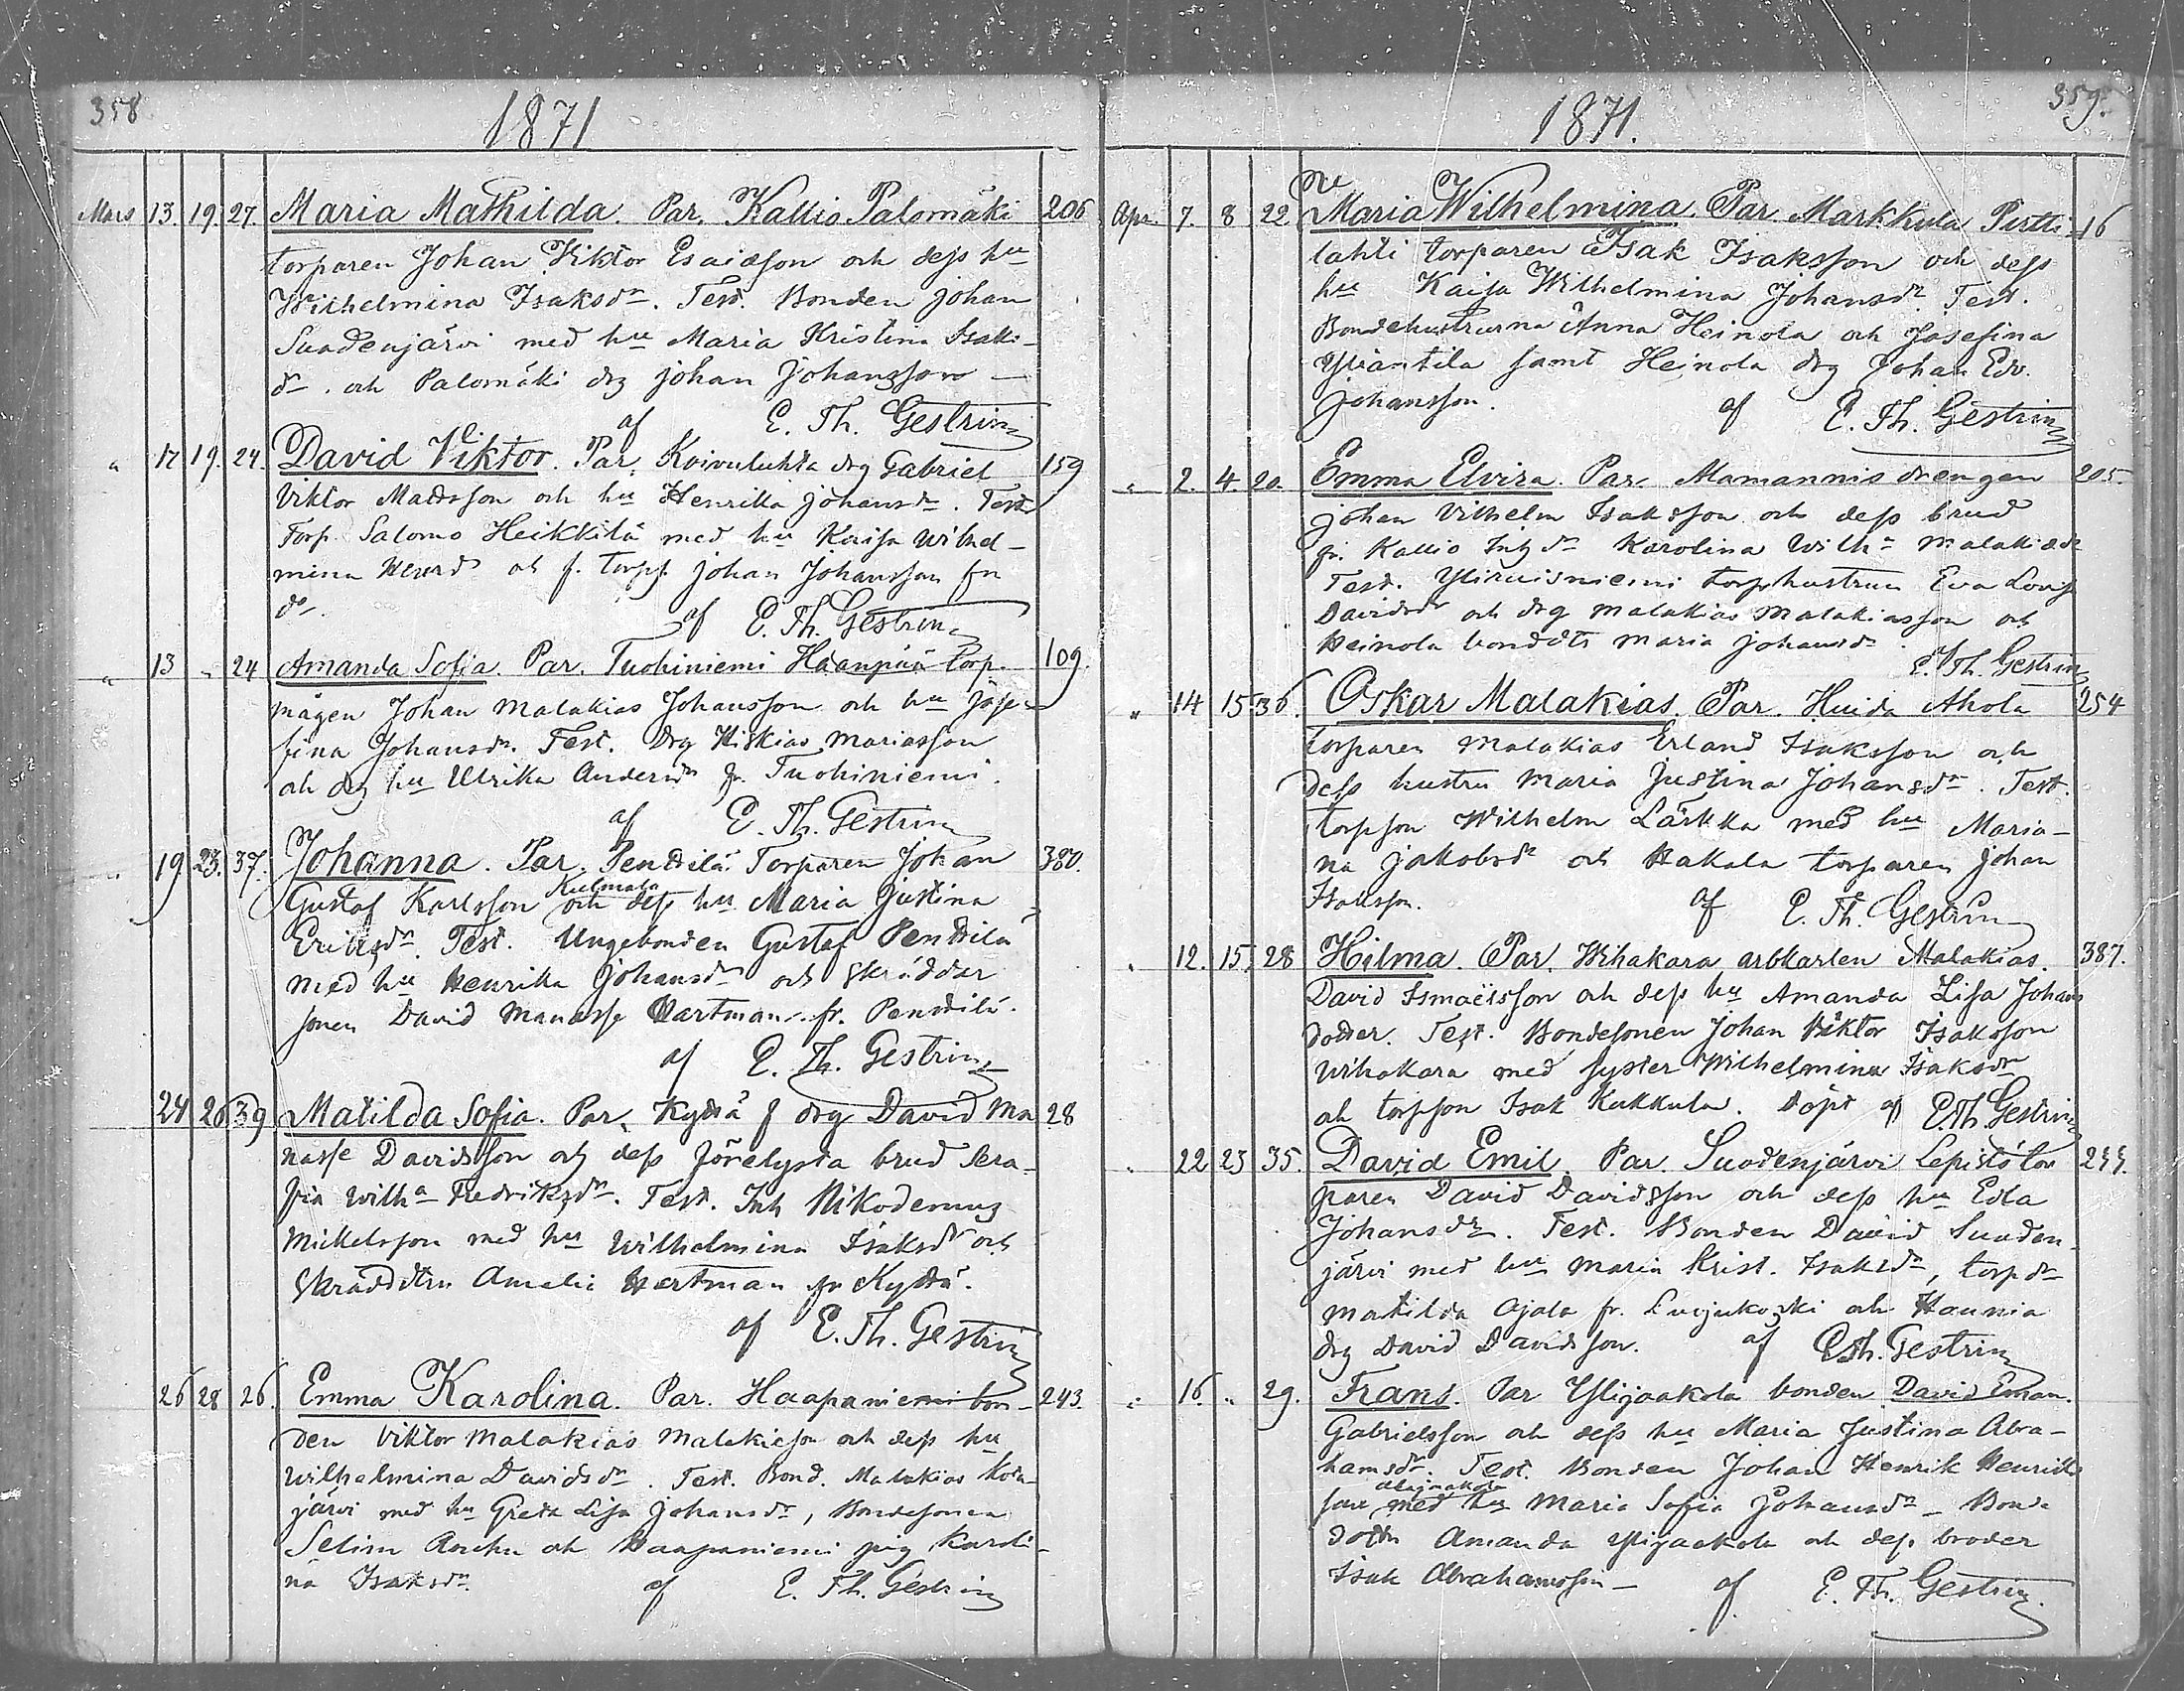 358
1871
Mars 13. 19. 27. Maria Mathilda. Par. Kallio Palomäki 206
torparen Johan Viktor Esaiasson och dess hu
Wilhelmina Isaksdr. Test. Bonden Johan
Suodenjärvi med hu Maria Kristina Isaks-
dr. och Palomäki drg Johan Johansson
af E. Th. Gestrin
" 17 19. 24. David Viktor. Par. Koivuluhta drg Gabriel 159
Viktor Mattsson och hu Henrika Johansdr. Test
Torp. Salomo Heikkilä med hu Kaisa Wilhel-
mina Henrdr och f. torps. Johan Johansson fr
do.
af E. Th. Gestrin
" 13 " 24 Amanda Sofia. Par. Tuohiniemi Haanpää torp. 109.
mågen Johan Malakias Johansson och hu Jose-
fina Johansdr. Test. Drg Hiskias Mariasson
och drg hu Ulrika Andersdr fr. Tuohiniemi.
af E. Th. Gestrin
" 19 23. 37. Johanna. Par. Penttilä Torparen Johan 380.
Kulmala
Gustaf Karlsson och dess hu Maria Justina
Eriksdr. Test. Ungebonden Gustaf Penttilä
med hu Henrika Johansdr och skräddar
sonen David Manasse Hartman fr. Penttilä.
af E. Th. Gestrin
24 26 39 Matilda Sofia. Par. Kyttä f drg David Ma 28
nasse Davidsson och dess förelysta brud Sera-
fia Wilha Fredriksdr. Test. Inh Nikodemus
Mickelsson med hu Wilhelmina Isaksdr och
Skräddtru Amalie Hartman fr Kyttä.
af E. Th. Gestrin
26 28 26. Emma Karolina. Par. Haapaniemi bon- 243.
den Viktor Malakias Malakiasson och dess hu
Wilhelmina Davidsdr. Test. Bond. Malakias Kota-
järvi med hu Greta Lisa Johansdr, Bondesonen
Selim och Haapaniemi pig Karoli-
na Isaksdr.
af E. Th. Gestrin
359.
1871.
Apr. 7. 8 22 Maria Wilhelmina. Par. Markkula Pirtti- 16
lahti torparen Isak Isaksson och dess
hu Kaisa Wilhelmina Johansdr. Test.
Bondehustrurna Anna Heinola och Josefina
Yliantila samt Heinola drg Johan Edv.
Johansson. af E. Th. Gestrin
" 2. 4. 20. Emma Elvira. Par. Mamannis drengen 205.
Johan Vilhelm Isaksson och dess brud
fr. Kallio Inh dr Karolina Wilha Malakiasdr
Test. Yliruisniemi torphustrun Eva Lovisa
Davidsdr och drg Malakias Malakiasson och
Heinola bonddtr Maria Johansdr.
E. Th. Gestrin
" 14 15 36. Oskar Malakias. Par. Huida Ahola 254
torparen Malakias Erland Isaksson och
dess hustru Maria Justina Johansdr. Test.
torpson Wilhelm Lärkka med hu Maria-
na Jakobsdr och Hakala torparen Johan
Isaksson. af E. Th. Gestrin
" 12. 15. 28 Hilma. Par. Wihakara arbkarlen Malakias. 387.
David Ismaelsson och dess hu Amanda Lisa Johans
dotter. Test. Bondesonen Johan Viktor Isaksson
Wihakara med syster Wilhelmina Isaksdr
och torpson Isak Kukkula. Döpt af E. Th. Gestrin
" 22 23 35. David Emil. Par. Suodenjärvi Lepistö tor 255.
paren David Davidsson och dess hu Edla
Johansdr. Test. Bonden David Suoden-
järvi med hu Maria Krist. Isaksdr, torpdr
Matilda Ojala fr. och Haunia
drg David Davidsson. af E. Th. Gestrin
" 16. " 29. Frans. Par Ylijaakola bonden David Eman.
Gabrielsson och dess hu Maria Justina Abra-
hamsdr. Test. Bonden Johan Henrik Henriks
Alijaakola
son med hu Maria Sofia Johansdr - Bond
dottr Amanda Ylijaakola och dess broder
Isak Abrahamsson - af E. Th. Gestrin.